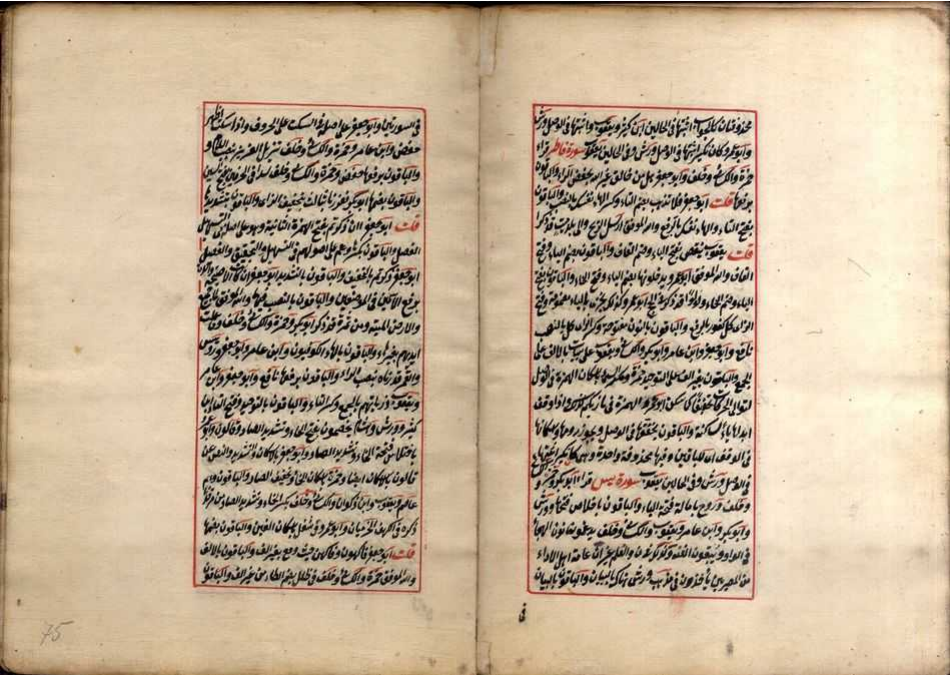 محذوفتان كالجواب اثبتها في الحالين ابن كثير ويعقوب واثبتها في الوصل ورش
وابو عمرو وكان نكير اثبتها في الوصل ورش وفي الحالين يعقوب سورة فاطر قرأ
حمزة والكسائي وخلف وابو جعفر هل من خالق غير الله بخفض الراء والباقون
برفعها قلت ابو جعفر فلا تذهب بضم التاء وكسر الهاء نفسك بالنصب والباقون
بفتح التاء والهاء نفسك بالرفع والله الموفق ارسل الريح والى بلد ميت قد ذكر
قلت يعقوب ينقص بفتح الياء وضم القاف والباقون بضم الياء وفتح
القاف والله الموفق ابو عمرو يدخلونها بضم الياء وفتح الخاء والباقون بفتح
الياء وضم الخاء ولؤلؤا قد ذكر في الحج ابو عمرو وكذلك يجزى بالياء مضمومة وفتح
الزاي كل كفور بالرفع والباقون بالنون مفتوحة وكسر الزاي كل بالنصب
نافع وابو جعفر وابن عامر وابو بكر والكسائي ويعقوب على بينات بالالف على
الجمع والباقون بغير الف على التوحيد حمزة ومكر السيئ باسكان الهمزة في الوصل
لتوالي الحركات تخفيفا كما سكن ابو عمرو الهمزة في بارئكم واذا وقف
ابدلها ياء ساكنة والباقون يخفضونها في الوصل ويجوز رومها واسكانها
في الوقف وفيها محذوفة واحدة وهي نكير اثبتها
في الوصل ورش وفي الحالين يعقوب سورة يس قرأ ابو بكر وحمزة
وخلف وروح بامالة فتحة الياء والباقون باخلاص فتحها وورش
وابو بكر وابن عامر ويعقوب والكسائي وخلف يدغمون نون الهجاء
في الواو ويبقون الغنة وكذلك في ن والقلم غير ان عامة اهل الاداء
من المصريين يأخذون في مذهب ورش هناك بالبيان والباقون بالبيان
في
في السورتين وابو جعفر على اصله في السكت على الحروف واذا سكت اظهر
حفص وابن عامر وحمزة والكسائي وخلف تنزيل العزيز بنصب اللام
والباقون برفعها حفص وحمزة والكسائي وخلف سدا في الحرفين بفتح السين
والباقون بضمها ابو بكر فعززنا بثالث بتخفيف الزاي والباقون بتشديدها
قلت ابو جعفر اان ذكرتم بفتح الهمزة الثانية وهو على اصله في التسهيل
والفصل والباقون بكسرها وهم على اصولهم في التسهيل والتحقيق والفصل
ابو جعفر ذكرتم بالتخفيف والباقون بالتشديد ابو جعفر ان كانت الا صيحة واحدة
برفع الاثنين في الموضعين والباقون بالنصب فيهما والله الموفق لما جميع
والارض الميتة ومن ثمرة قد ذكر ابو بكر وحمزة والكسائي وخلف وما عملت
ايديهم بغير هاء والباقون بالهاء الكوفيون وابن عامر وابو جعفر ورويس
والقمر قدرناه بنصب الراء والباقون برفعها نافع وابو جعفر وابن عامر
ويعقوب ذرياتهم بالجمع وكسر التاء والباقون بالتوحيد وفتح التاء ابن
كثير وورش وهشام يخصمون بفتح الخاء وتشديد الصاد وقالون وابو عمرو
باختلاس فتحة الخاء وتشديد الصاد وابو جعفر بالاسكان والتشديد والنص عن
قالون بالاسكان ايضا وحمزة باسكان الخاء وتخفيف الصاد والباقون وهم
عاصم ويعقوب وابن ذكوان والكسائي وخلف بكسر الخاء وتشديد الصاد من مرقدنا
ذكره في الكهف الحرميان وابو عمرو في شغل باسكان الغين والباقون بضمها
قلت ابو جعفر فاكهون وفاكهين حيث وقع بغير الف والباقون بالالف
والله الموفق حمزة والكسائي وخلف في ظلل بضم الظاء من غير الف والباقون
75